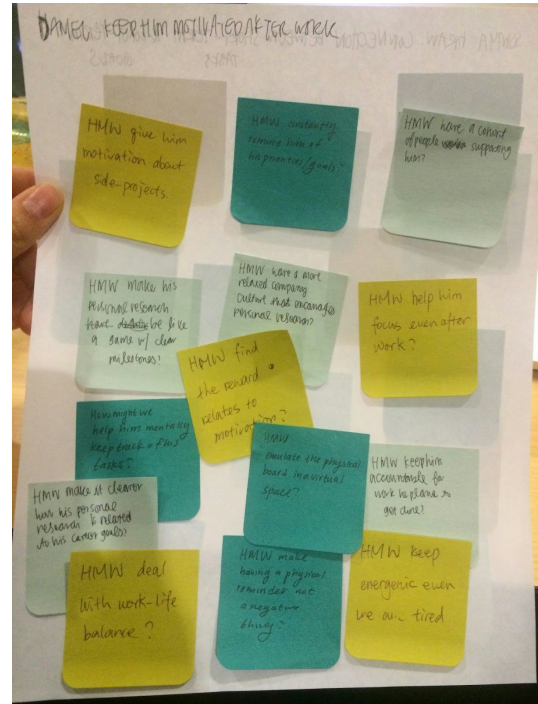 DANIEL KEEP HIM MOTIVATED AFTER WORK
HMW give him
motivation about
side-projects
HMW constantly
remind him of
his priorities/goals?
HMW have a cohort
of people supporting
him?
HMW make his
personal research
be like
a game w/ clear
milestones?
HMW have a more
relaxed company
culture that encourages
personal research?
HMW help him
focus even after
work?
HMW find
the reward
relates to
motivation?
How might we
help him mentally
keep track of his
tasks?
HMW
emulate the physical
board in a virtual
space?
HMW keep him
accountable for
work he plans to
get done?
HMW make it clearer
how his personal
research is related
to his career goals?
HMW deal
with work-life
balance?
HMW make
having a physical
reminder not
a negative
thing?
HMW keep
energenic even
we are tired